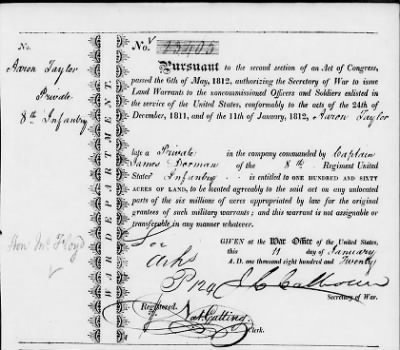 No.
Aaron Taylor
Private
8th Infantry
Hon Mr Floyd
WAR DEPARTMENT.
No. 15405
Pursuant to the second section of an Act of Congress,
passed the 6th of May, 1812, authorizing the Secretary of War to issue
Land Warrants to the noncommissioned Officers and Soldiers enlisted in
the service of the United States, conformably to the acts of the 24th of
December, 1811, and of the 11th of January, 1812, Aaron Taylor
late a Private in the company commanded by Captain
James Dorman of the 8th Regiment United
States' Infantry is entitled to ONE HUNDRED AND SIXTY
ACRES OF LAND, to be located agreeably to the said act on any unlocated
parts of the six millions of acres appropriated by law for the original
grantees of such military warrants; and this warrant is not assignable or
transferable in any manner whatever.
GIVEN at the War Office of the United States,
this 11 day of January
A. D. one thousand eight hundred and Twenty
J C Calhoun
Secretary of War.
Registered.
Nat. Cutting
Clerk.